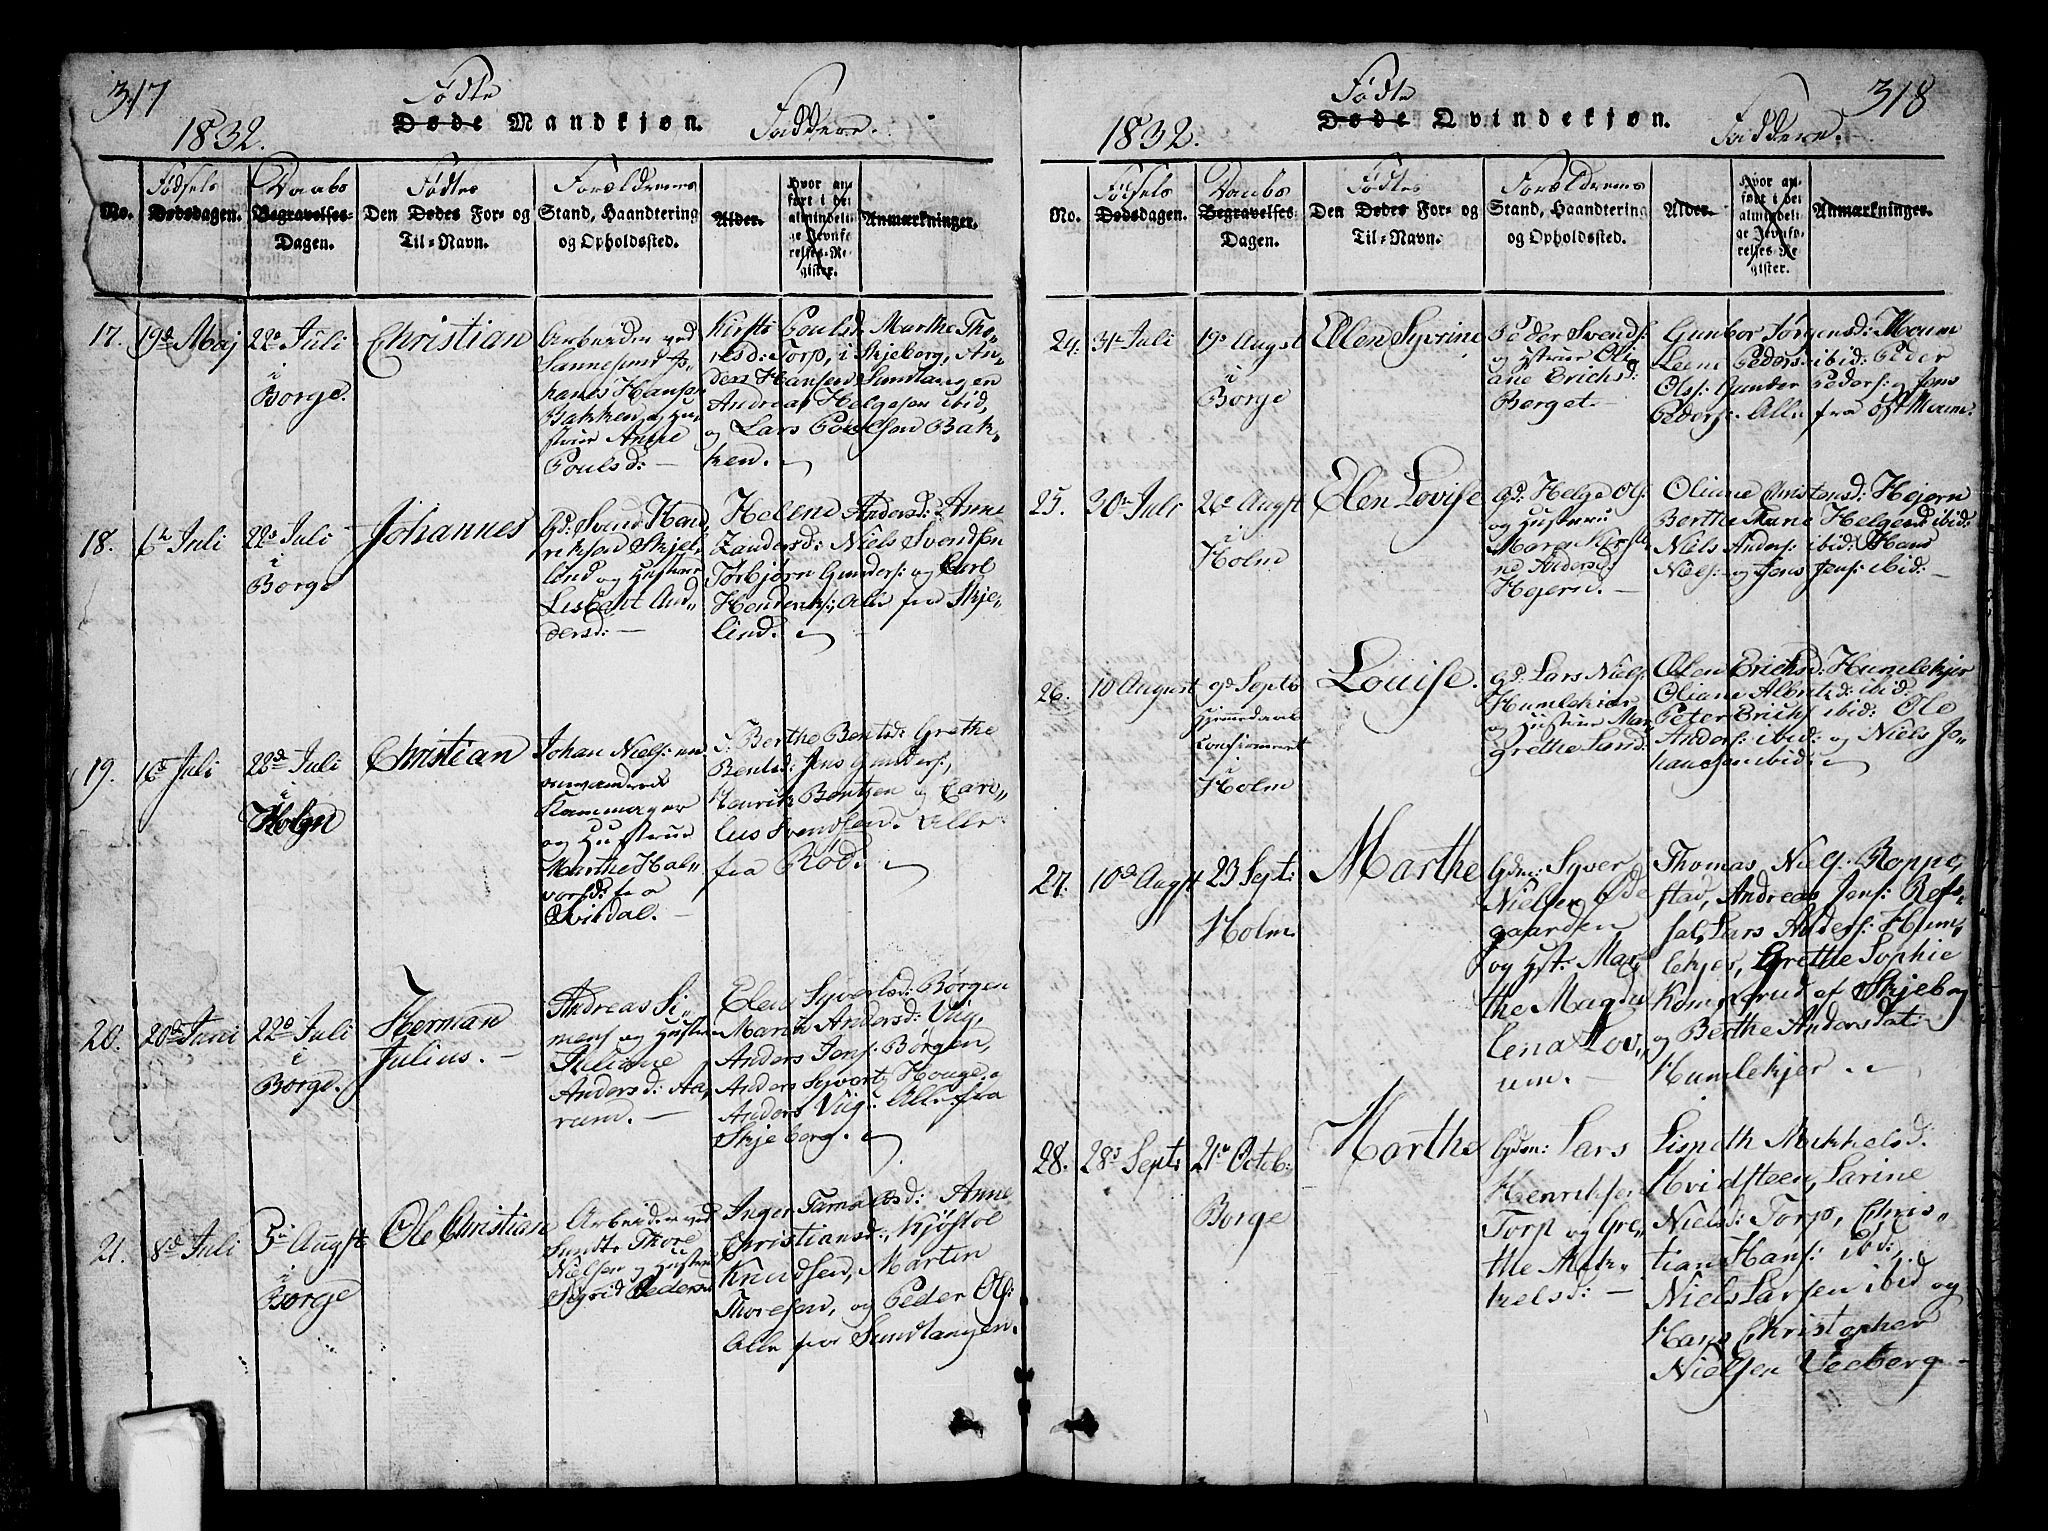 317
1832.
Fødte
Døde Mandkjøn.
Faddere.
No.
Fødsels
Dødsdagen.
Daabs
Begravelses-
Dagen.
Fødtes
Den Dødes For- og
Til-Navn.
Forældrenes
Stand, Haandtering
og Opholdssted.
Alder.
Hvor an-
ført i det
almindeli-
ge Jevnfø-
relses-Re-
gister.
Anmærkninger.
17.
19de Maj
22de Juli
i
Borge.
Christian
Arbeider ved
Sannesund Jo-
hannes Hansen
Bakken og Hu-
strue Anne
Poulsd: —
Kirsti Poulsd: Marthe Tho-
resd: Torp, i Skjeberg, An-
ders Hansen Sundlangen
Andreas Helgesen ibid,
og Lars Poulsen Bak-
ken.
18.
6te Juli
22de Juli
i
Borge
Johannes
Gd: Svend Hend
riksen Skjel
lind og Hustrue
Lisbeht An-
dersd: —
Helene Andersd: Anne
Zandersd: Niels Svendsen
Torbjørn Gunders: og Carl
Hendriks: Alle fra Skje-
lind.
19.
16de Juli
22de Juli
i
Holm
Christian
Johan Niels: en
omvandrende
Kammager
og Hustrue
Marthe Hal-
vorsd: fra
Qvirdal. —
Berthe Bentsd: Grethe
Bentsd: Jens Gunders:,
Henrik Bentsen og Carl
ius Svendsen. Alle
fra Rød.
20.
20de Juni
22de Juli
i
Borge.
Herman
Julius. —
Andreas Si-
mens og Hustrue
Juliane
Andersd: Aa-
rum. —
Elen Syvertsd: Børgen
Marth Andersd: Viig,
Anders Jens: Børgen,
Anders Syverts Houge,
Anders Viig: Alle fra
Skjeberg.
21.
8de Juli
5te Augst
i
Borge
Ole Christian
Arbeider ved
Sundte Thore
Nielsen og Hustrue
Sigrid Pedersd
Inger Tarnæsd: Anne
Christiansd:, Kjøstol
Knudsen, Martin
Thoresen, og Peder Ols:
Alle fra Sundlangen.
318
1832.
Fødte
Døde Qvindekjøn.
Faddere.
No.
Fødsels
Dødsdagen.
Daabs
Begravelses-
Dagen.
Fødtes
Den Dødes For- og
Til-Navn.
Forældrenes
Stand, Haandtering
og Opholdssted.
Alder.
Hvor an-
ført i det
almindeli-
ge Jevnfø-
relses-Re-
gister.
Anmærkninger.
24.
31te Juli
19de Augst
i
Borge
Ellen Syvrine
Peder Svends:
og Hustrue Oli
ane Erichsd:
Berget —
Gunbor Jørgensd: Moum
Leene Peders: ibid: Peder
Ols: Gunder Peders: og Jens
Peders: Alle fra Øst Moum.
25.
30te Juli
26de Augst
i
Holm
Elen Lovise
Gd: Helge Ols:
og Hustrue
Maren Kirsti-
ne Andersd:
Hejern. —
Oliane Christensd: Hejern
Berthe Marie Helgesd: ibid:
Niels Anders: ibid: Hans
Niels: og Jens Jens: ibid: —
26.
10 August
9de Septb
Hjemmedaab
Confirmeret
i
Holm
Louise.
Gd: Lars Niels:
Humlekjær
og Hustrue Mar
grethe Lund
Elen Erichsd: Humlekjer
Oliane Albretsd: ibid.
Peter Erichs: ibid: Ole
Anders: ibid: og Niels Jo-
hannesen ibid:
27.
10de Augst
23 Sept:
Holm
Marthe
Gdm: Syver
Nielsen Øde
gaarden
og Hst: Mar
the Magda
lena Lov-
um. —
Thomas Niels: Roppe-
stad, Andreas Jens: Ref-
sal, Lars Anders: Hum-
lekjer, Grethe Sophie
Kompsrud af Skjeberg
og Berthe Andersdat:
Humlekjer.
28.
28de Septb
21de Octob:
Borge
Marthe
Gdm: Lars
Henriksen
Torp og Gre-
the Mik-
kelsd: —
Lispeth Mikkelsd:
Hvidsteen, Larine
Nielsd: Torp, Chris-
tian Hans: ibd:,
Niels Larsen ibid og
Hans Christopher
Nielsen Veeberg —